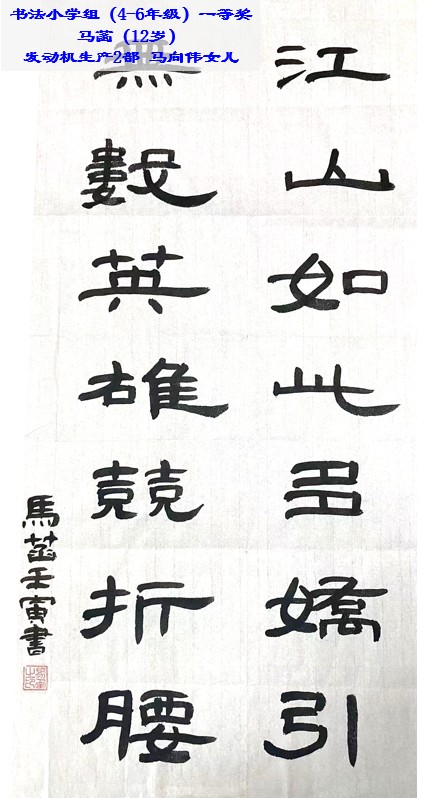 书法小学组（4-6年级）一等奖
马菡（12岁）
发动机生产2部 马向伟女儿
江山如此多嬌引
無數英雄競折腰
馬菡壬寅書